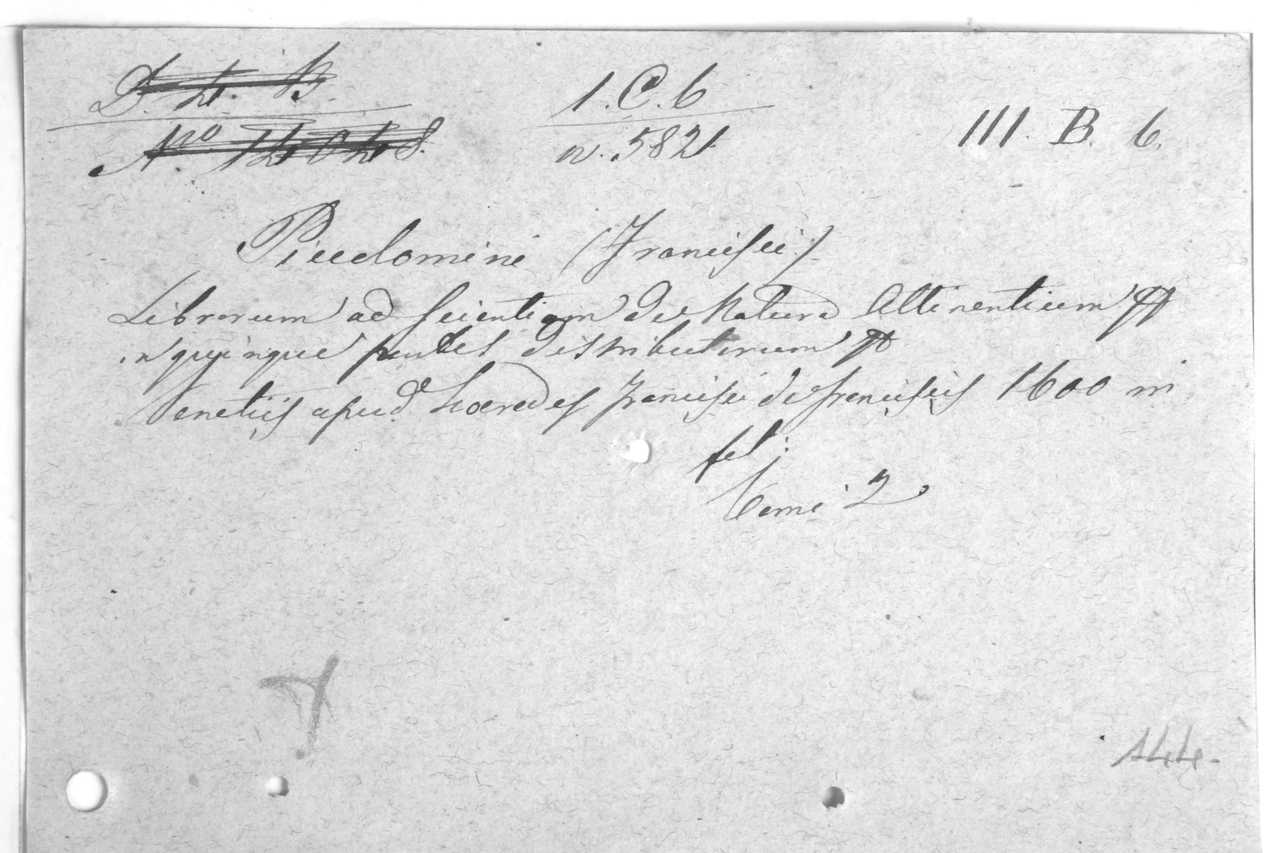 D. 4. B.
Nro 14048.
1.C.6
n. 5821
III. B. 6.
Piccolomini (Francisci)
Librorum ad scientiam de Natura Attinentium
in quinque partes distributorum
Venetiis apud Haeredes Francisci de Franciscis 1600 in
fol:
Tomi 2